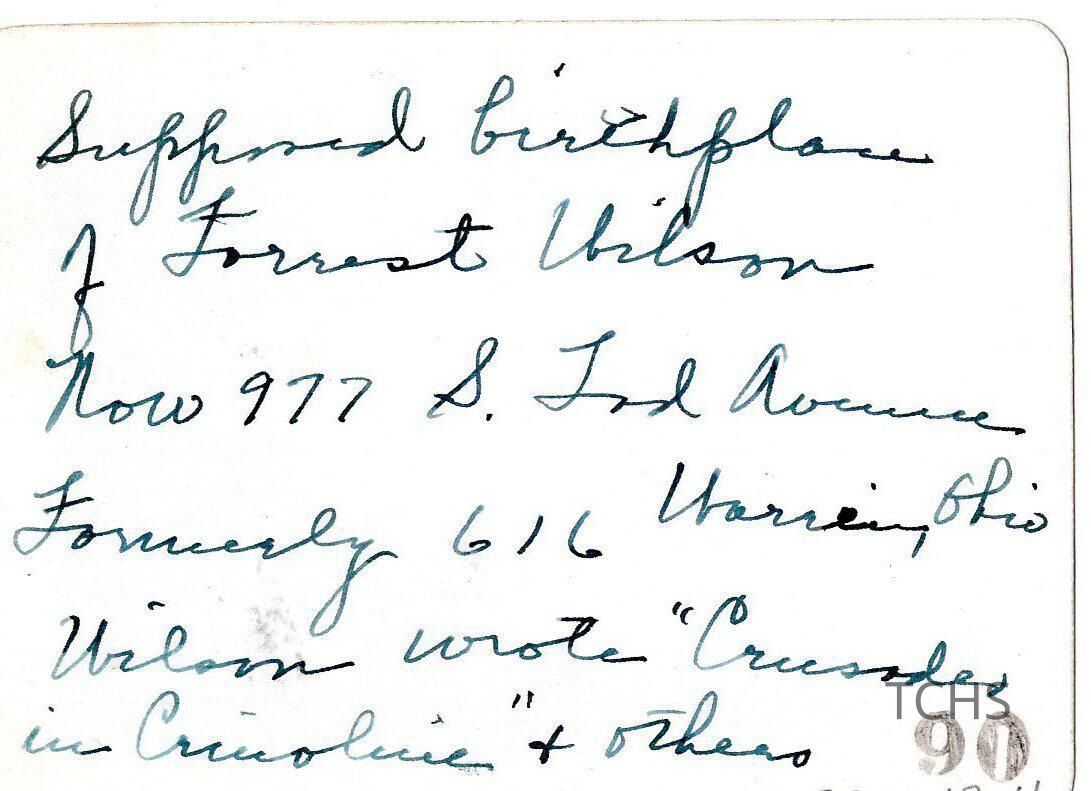 Supposed birthplace
of Forrest Wilson
Now 977 S. Tod Avenue
Warren, Ohio
Formerly 616
Wilson wrote "Crusader
in Crinoline" & others
TCHS
90